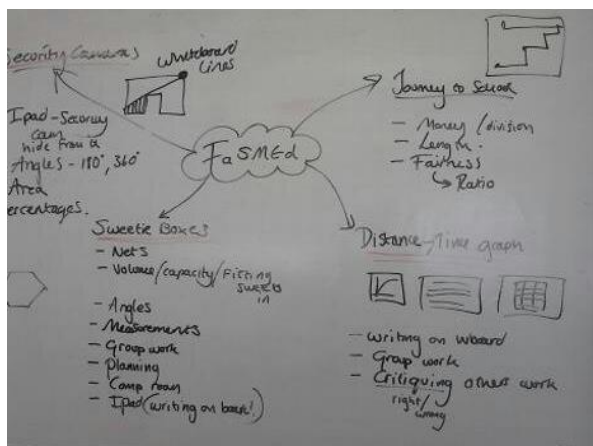 Security Cameras
Whiteboard
Lines
Ipad - Security
cam
hide from it
Angles - 180°, 360°
Area
ercentages.
FaSMEd
Journey to School
- Money / division
- Length.
- Fairness
↳ Ratio
Sweetie Boxes
- Nets
- Volume/capacity/Fitting
sweets
in
- Angles
- Measurements
- Group work
- Planning
- Comp room
- Ipad (writing on board!)
Distance-Time graph
- Writing on Wboard
- Group work
- Critiquing others work
right/
wrong